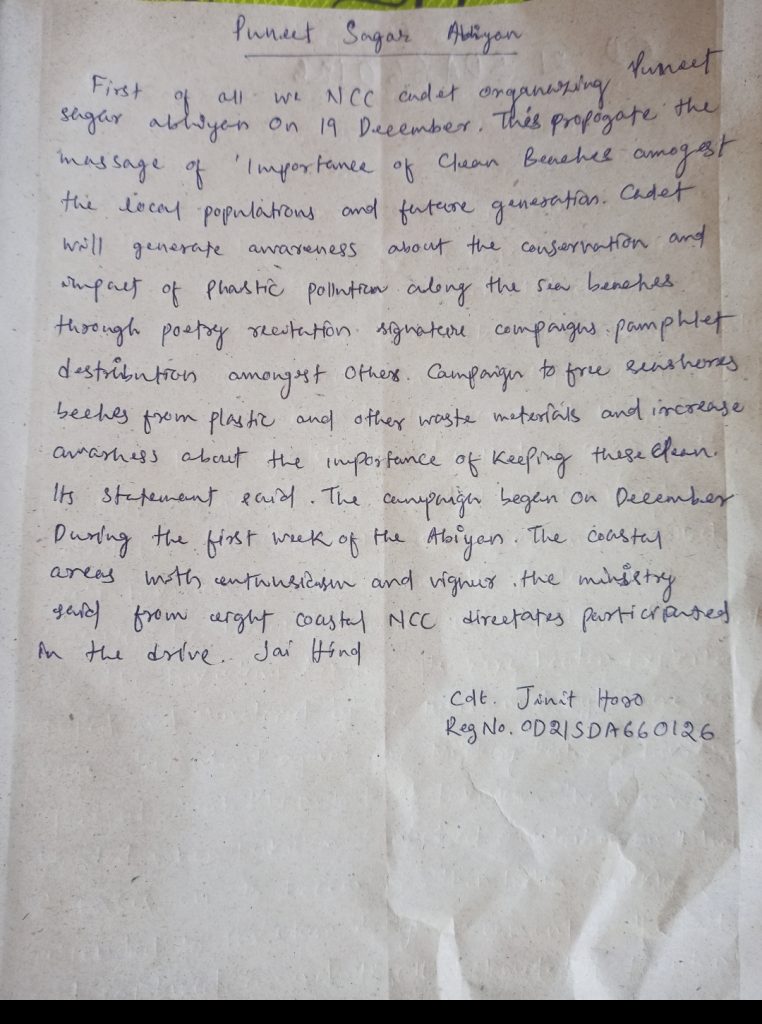 Puneet Sagar Abiyan
First of all we NCC cadet organazing Puneet
sagar abhiyan On 19 December. This propogate the
massage of 'Importance of Clean Beaches amogest
the local populations and future generation. Cadet
will generate awareness about the conservation and
impact of phastic pollution along the sea beaches
through poetry recitation signature compaigns pamphlet
distribution amongest others. Campaign to free seashores
beeches from plastic and other waste meterials and increase
awarness about the importance of Keeping these Clean.
Its statement said. The campaign began on December
During the first week of the Abiyan. The coastal
areas with enthusicasm and vighur. the ministry
said from eight coastal NCC directates participated
in the drive. Jai Hind
Cdt. Jinit Horo
Reg No. OD21SDA660126